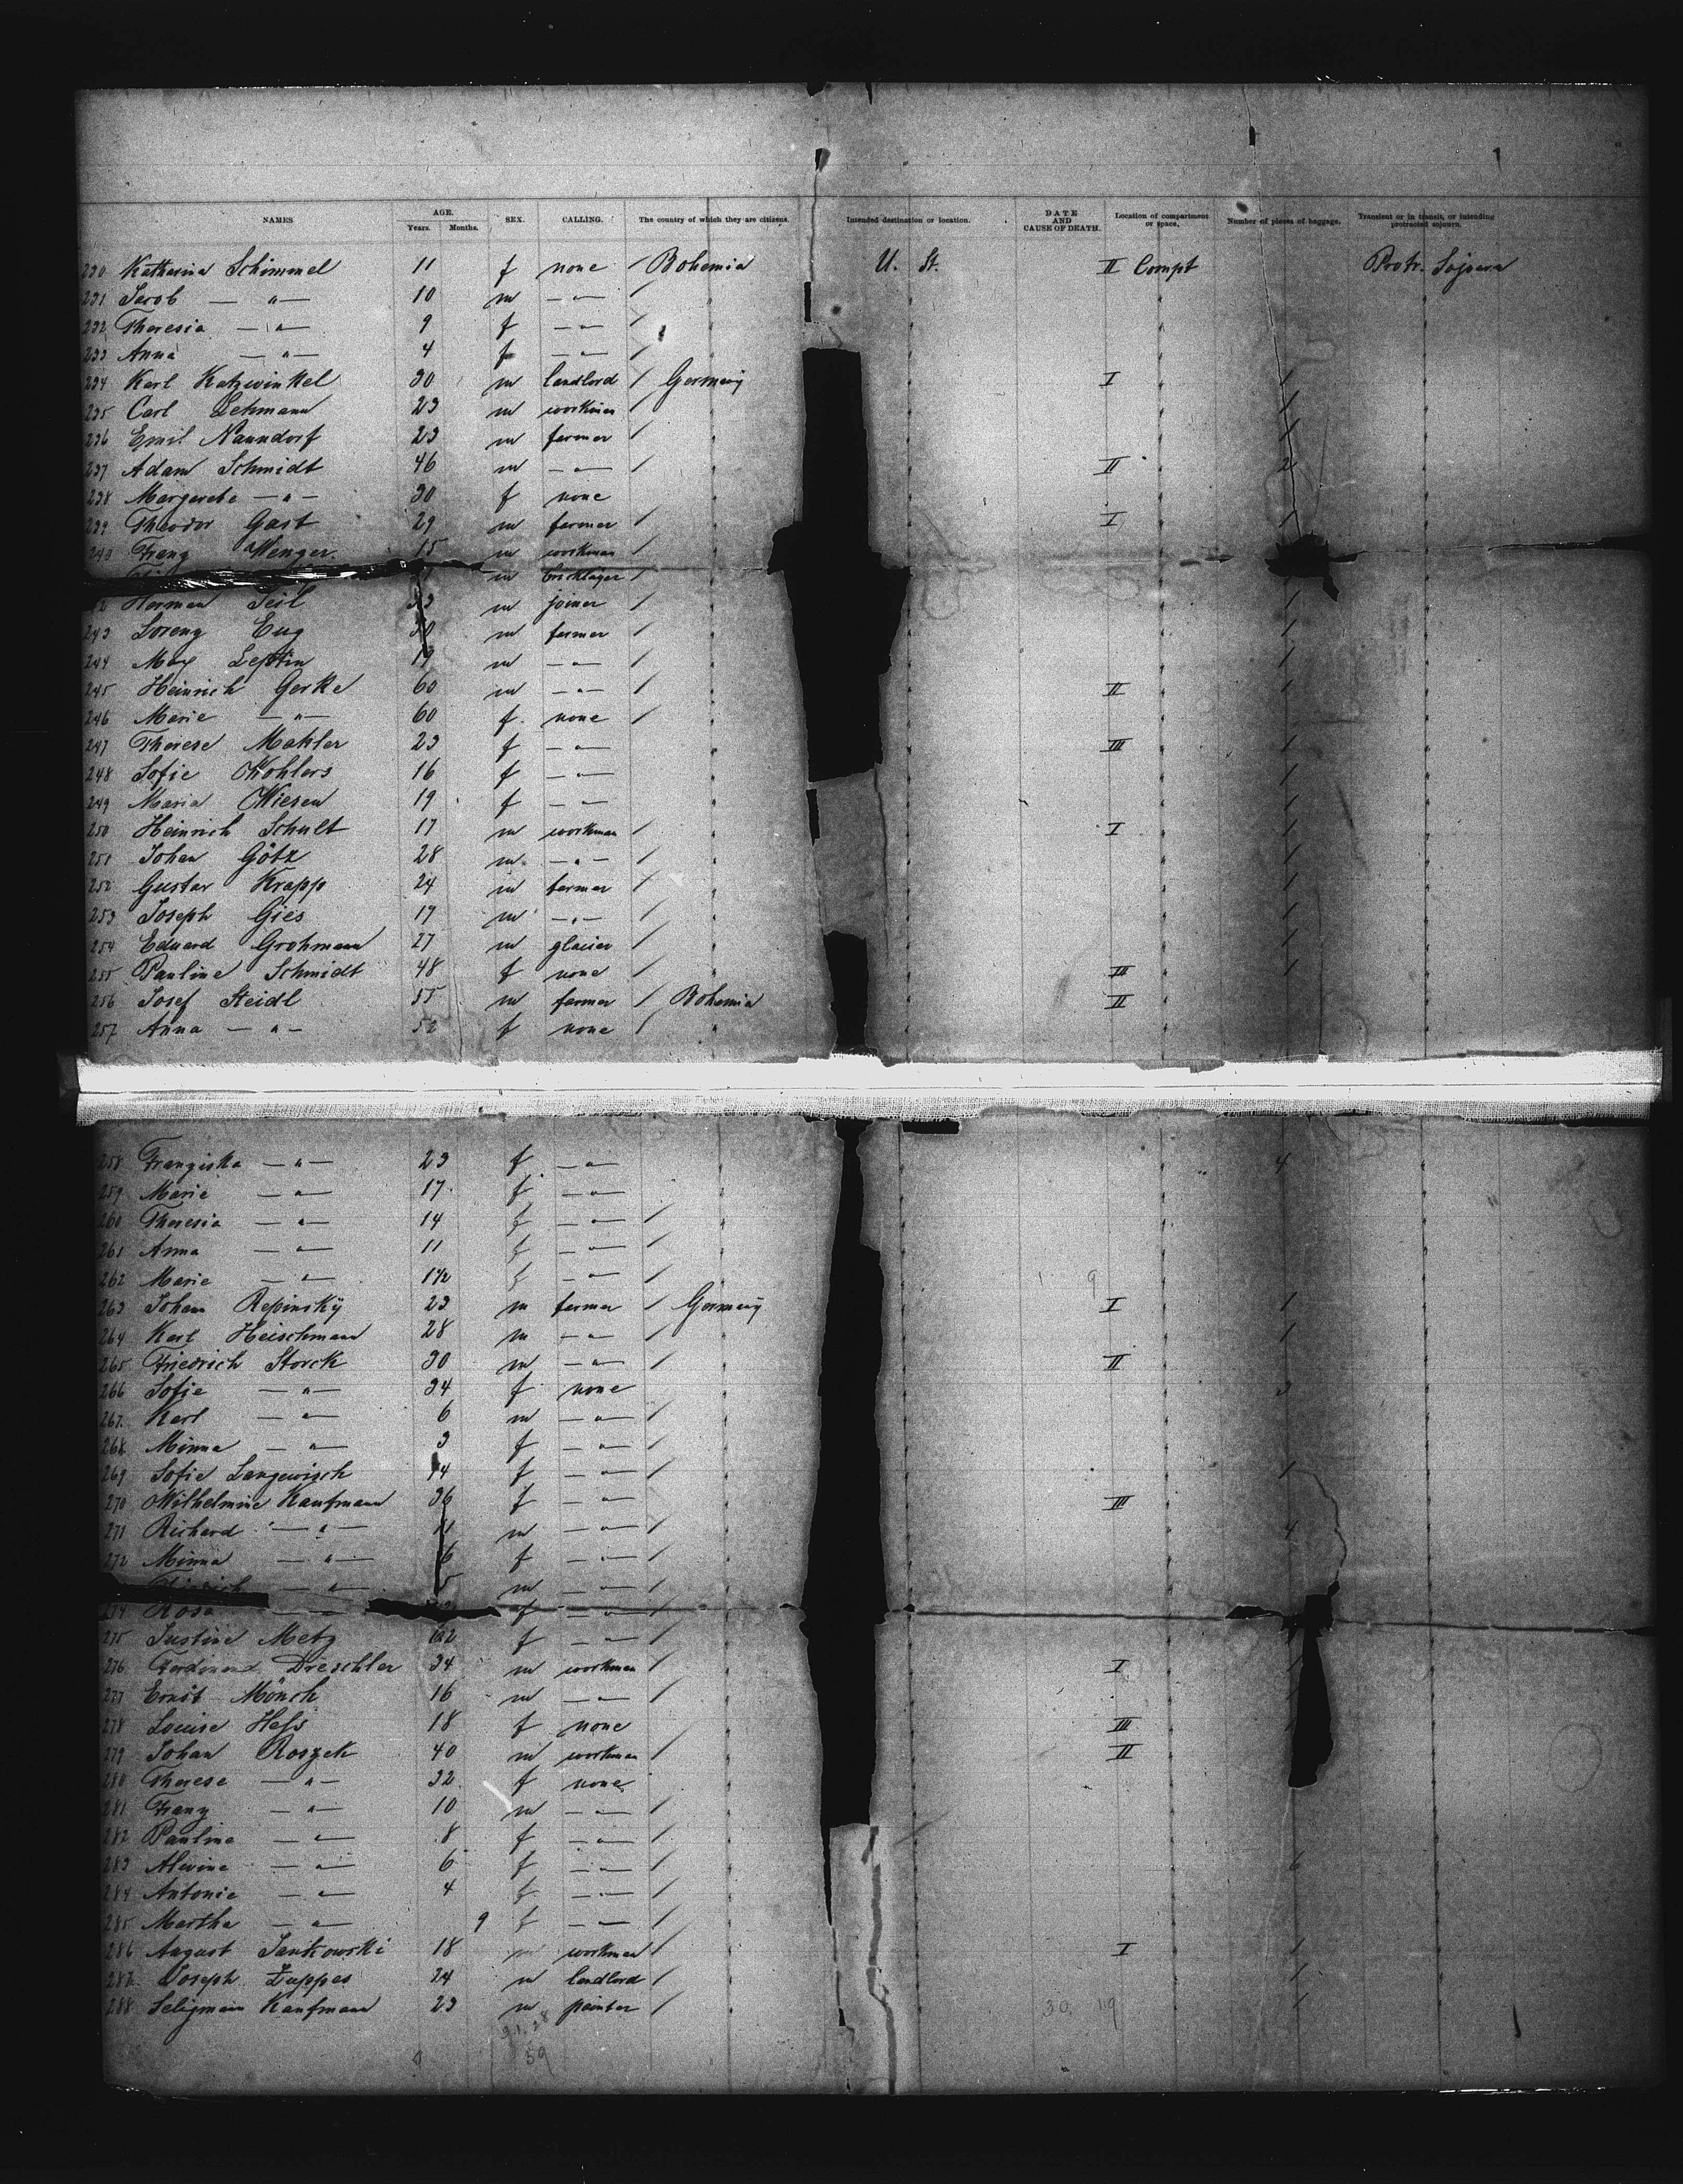 NAMES AGE. SEX. CALLING. The country of which they are citizens. Intended destination or location. DATE AND CAUSE OF DEATH. Location of compartment or space. Number of pieces of baggage. Transient or in transit, or intending protracted sojourn.
Years. Months.
230 Katharina Schimmel 11 f none / Bohemia U. St. II Compt Protr. Sojourn
231 Jacob — " — 10 m — " — /
232 Theresia — " — 9 f — " — /
233 Anna — " — 4 f — " — /
234 Karl Katzwinkel 30 m landlord / Germany I 1
235 Carl Lehmann 23 m workman / 1
236 Emil Naundorf 23 m farmer / 1
237 Adam Schmidt 46 m — " — / II 2
238 Margarethe — " — 30 f none
239 Theodor Gast 29 m farmer / I 1
240 Franz Wenger 15 m workman /
m /
Herman Seil 33 m joiner / 1
243 Lorenz Eug 30 m farmer / 1
244 Max Leptin 19 m — " — / 1
245 Heinrich Gerke 60 m — " — / II 1
246 Marie — " — 60 f. none /
247 Therese Mahler 23 f — " — III 1
248 Sofie Wohlers 16 f — " — 1
249 Maria Wiesen 19 f — " — 1
250 Heinrich Schult 17 m workman / I 1
251 Johan Götz 28 m — " — / 1
252 Gustav Krapp 24 m farmer / 1
253 Joseph Gies 17 m — " — / 1
254 Eduard Grohmann 27 m glacier / 1
255 Pauline Schmidt 48 f none / III 1
256 Josef Steidl 55 m farmer / Bohemia II
257 Anna — " — 52 f none /
258 Franziska — " — 23 f — " — 4
259 Marie — " — 17 f — " —
260 Theresia — " — 14 f — " — /
261 Anna — " — 11 f — " — /
262 Marie — " — 1 1/2 f — " — /
263 Johan Repinsky 23 m farmer / Germany I 1
264 Karl Heischmann 28 m — " — / 1
265 Friedrich Storck 30 m — " — / II
266 Sofie — " — 34 f none 3
267 Karl — " — 6 m — " — /
268 Minna — " — 3 f — " — /
269 Sofie Langewisch 14 f — " — / 1
270 Wilhelmine Kaufmann 36 f — " — III
271 Richard — " — 11 m — " — / 4
272 Minna — " — 6 f — " — /
— " — 5 m — " — /
274 Rosa f — " — /
275 Justine Metz f — " — /
276 Ferdinand Dreschler 34 m workman / I
277 Ernst Mönch 16 m — " — /
278 Louise Hess 18 f none III
279 Johan Roszek 40 m workman / II
280 Therese — " — 32 f none
281 Franz — " — 10 m — " — /
282 Pauline — " — 8 f — " — /
283 Alwine — " — 6 f — " — / 6
284 Antonie — " — 4 f — " — /
285 Martha — " — 9 f — " — /
286 August Jankowski 18 m workman / I 1
287 Joseph Zuppes 24 m landlord / 1
288 Seligmann Kaufmann 23 m painter / 1
59